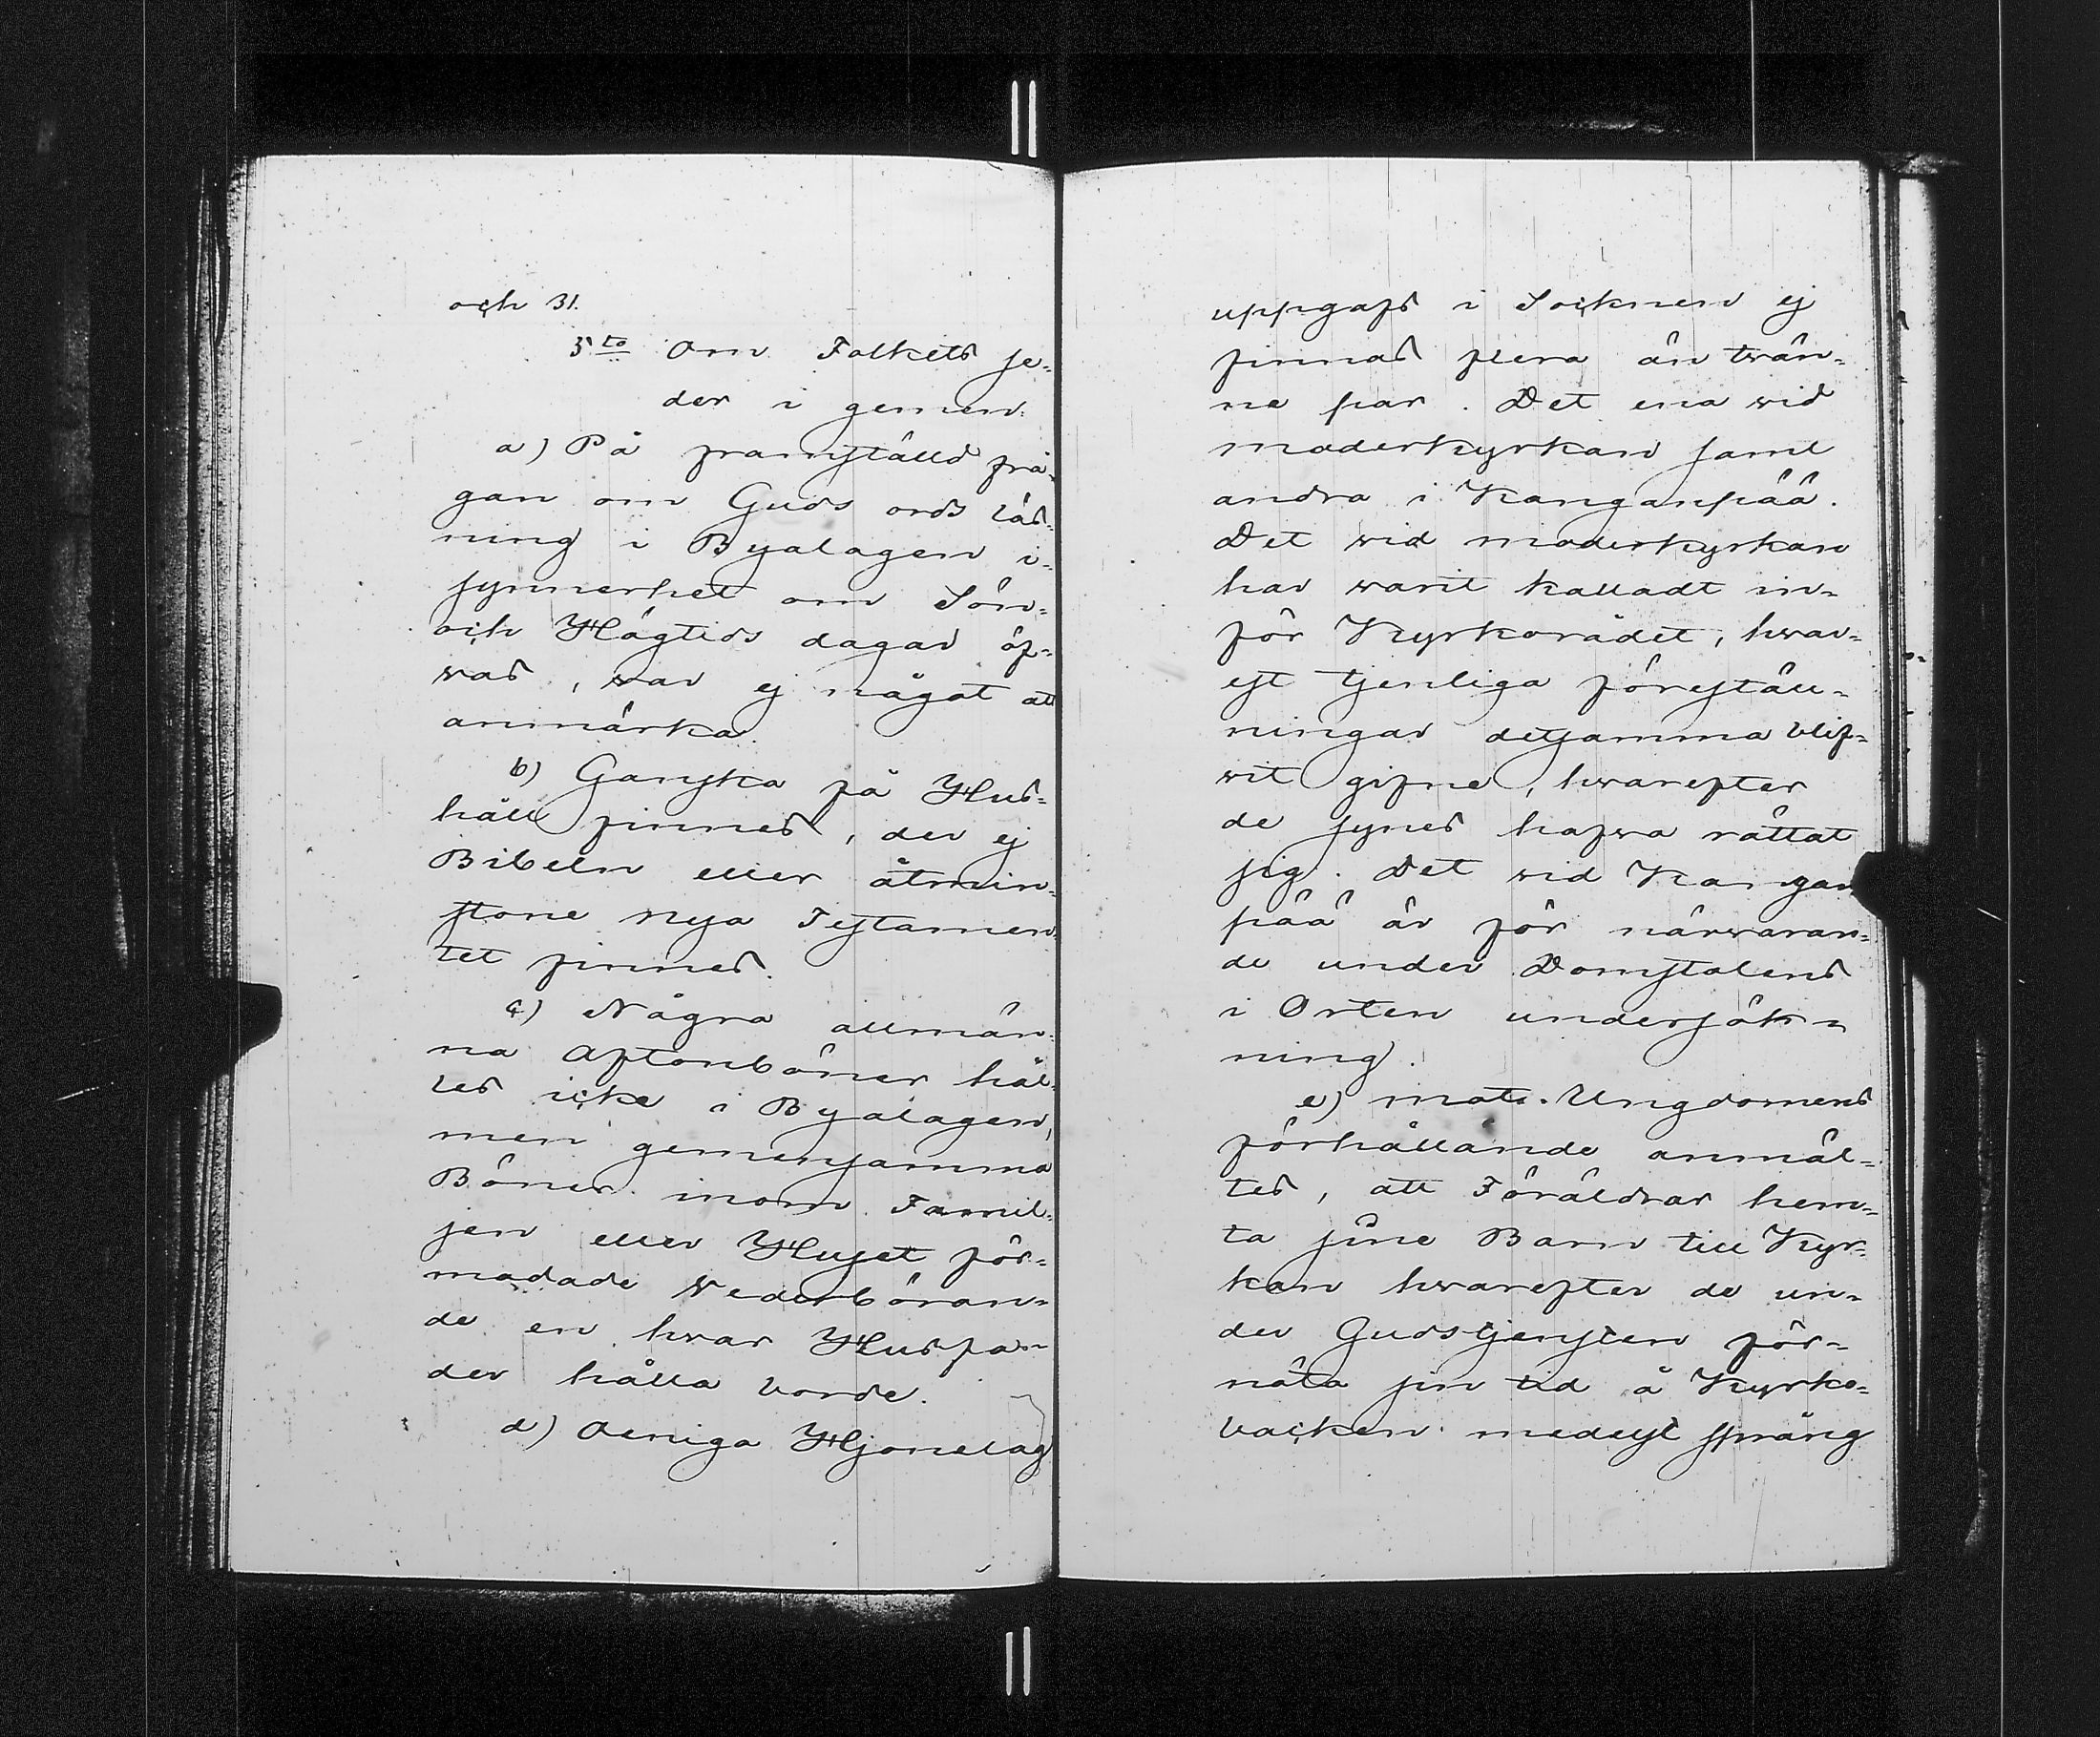 och 31.
5to Om Folkets se-
der i gemen.
a) På framstäld frå-
gan om Guds ords läs-
ning i Byalagen i-
synnerhet om Sön-
och Högtids dagar öf-
was, war ej något att
anmärka.
b) Ganska få Hus-
håll finnes, der ej
Bibeln eller åtmin-
stone nya Testamen-
tet finnes.
c) Några allmän-
na Aftonböner hål-
les icke i Byalagen,
men gemensamma
Böner inom Famil-
jen eller Huset för-
modade Wederböran-
de en hwar Husfa-
der hålla borde.
d) Oeniga Hjonelag
uppgafs i Socknen ej
finnas flera än twän-
ne par. Det ena wid
moderkyrkan samt
andra i Kanganpää.
Det wid moderkyrkan
har warit kalladt in-
för Kyrkorådet, hwar-
est tjenliga föreställ-
ningar detsamma blif-
wit gifne, hwarefter
de synes hafwa rättat
sig. Det wid Kangan
pää är för närwaran-
de under Domstolens
i Orten undersök-
ning.
e) mot. Ungdomens
förhållande anmäl-
tes, att Föräldrar hem-
ta sine Barn till Kyr-
kan hwarefter de un-
der Gudstjensten för-
nöta sin tid å Kyrko-
backen medest språng